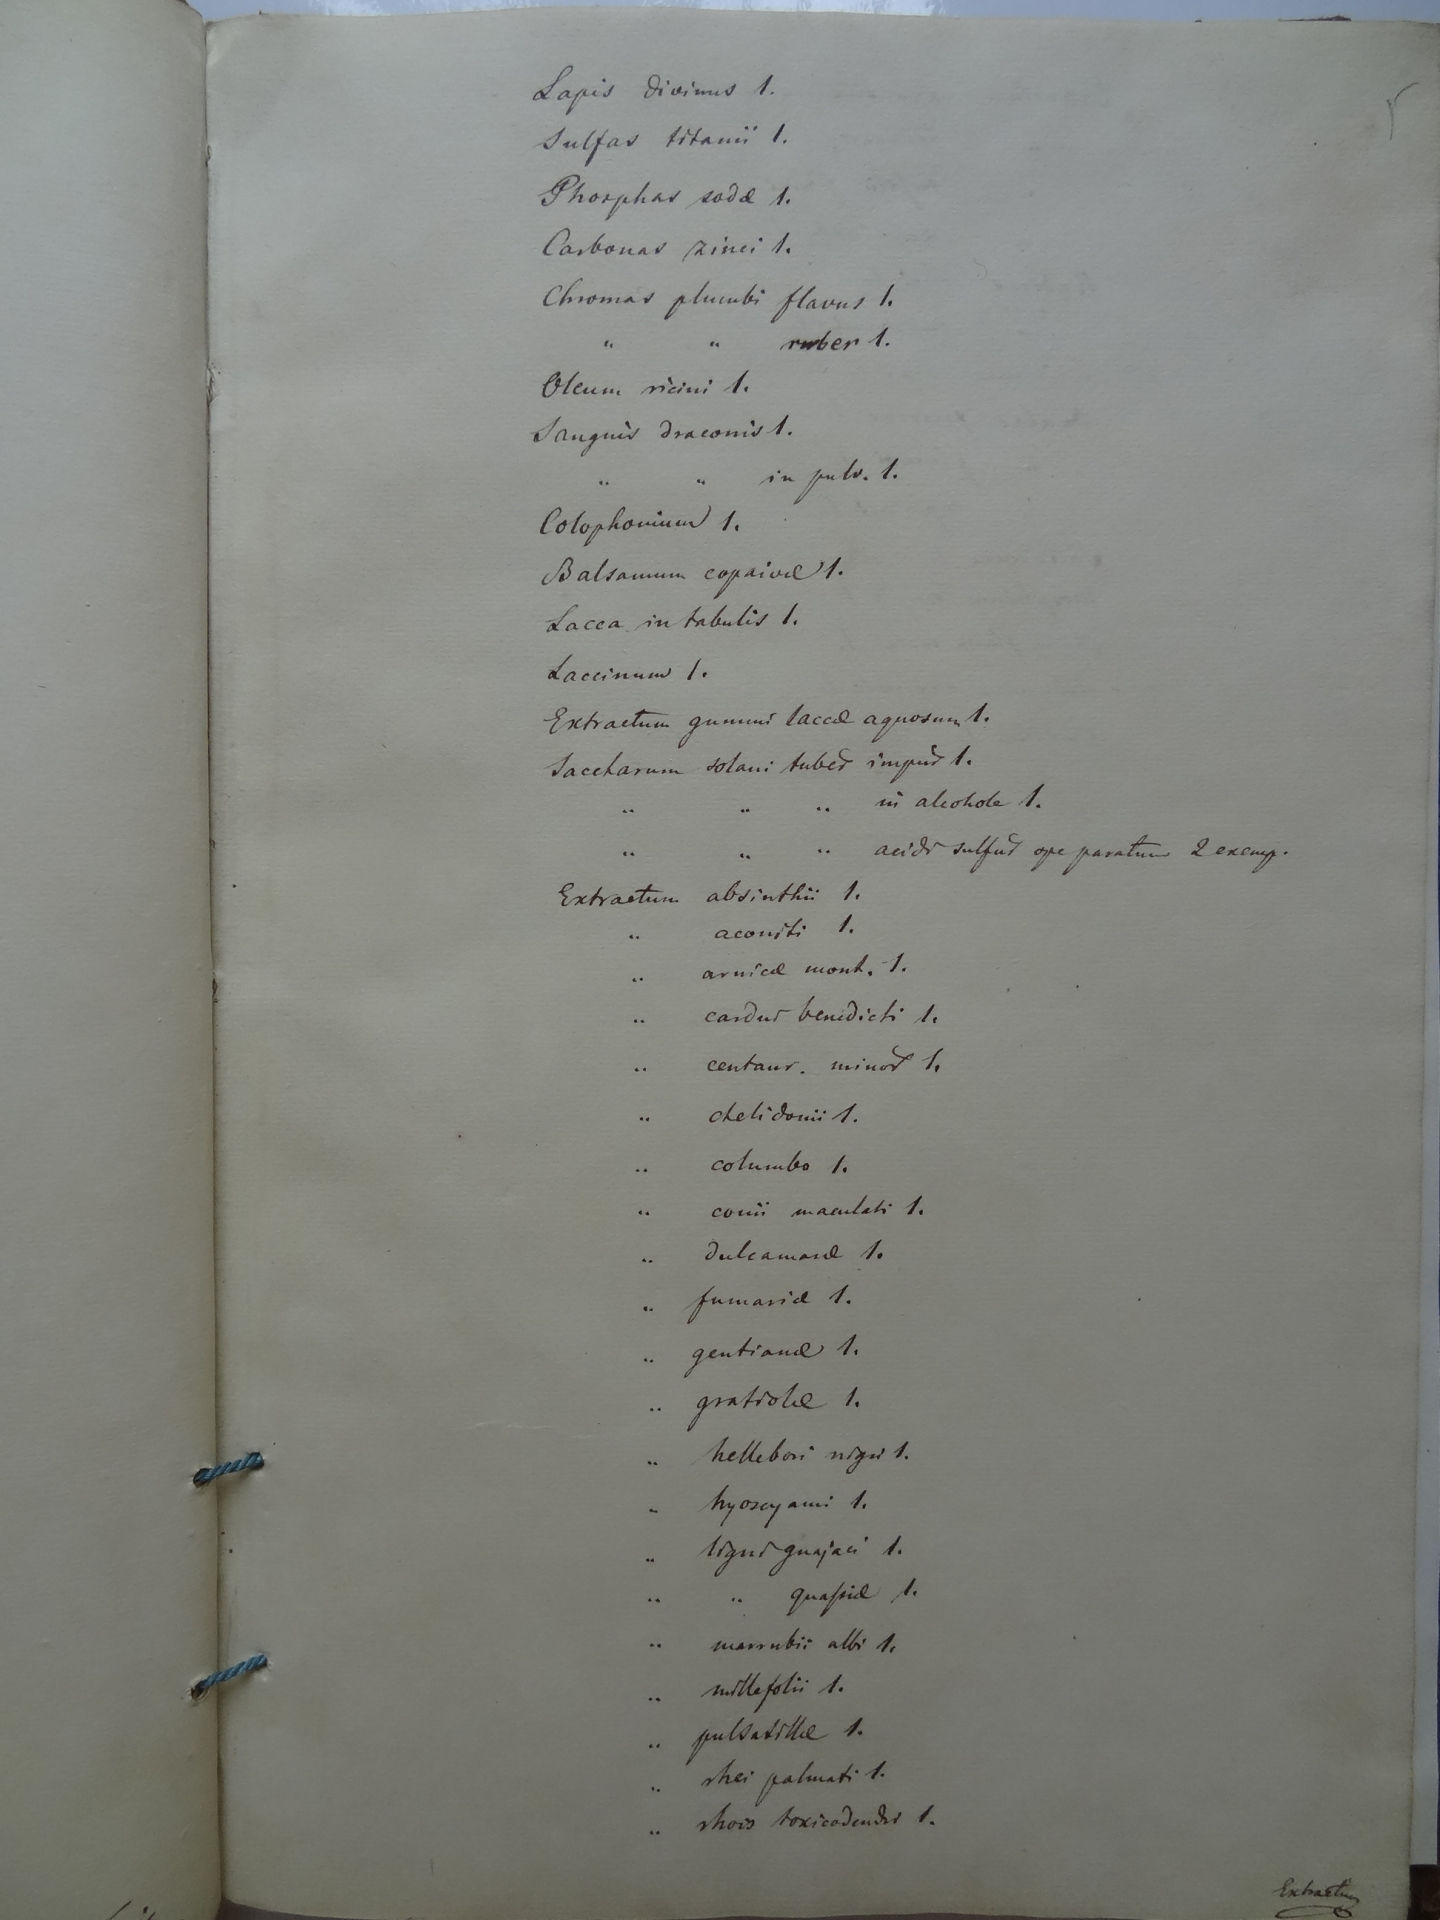 Lapis divinus 1.
Sulfas titanii 1.
Phosphas sodæ 1.
Carbonas zinci 1.
Chromas plumbi flavus 1.
" " ruber 1.
Oleum ricini 1.
Sanguis draconis 1.
" " in pulv. 1.
Colophonium 1.
Balsamum copaivæ 1.
Lacca in tabulis 1.
Laccinum 1.
Extractum gummi laccæ aquosum 1.
Saccharum solani tuber impur 1.
" " " in alcohole 1.
" " " acidi sulfur ope paratum 2 exemp.
Extractum absinthii 1.
" aconiti 1.
" arnicæ mont. 1.
" cardui benedicti 1.
" centaur. minor 1.
" chelidonii 1.
" columbo 1.
" conii maculati 1.
" dulcamaræ 1.
" fumariæ 1.
" gentianæ 1.
" gratiolæ 1.
" hellebori nigri 1.
" hyoscyami 1.
" ligni guajaci 1.
" " quassiæ 1.
" marrubii albi 1.
" millefolii 1.
" pulsatillæ 1.
" rhei palmati 1.
" rhois toxicodendri 1.
Extractum